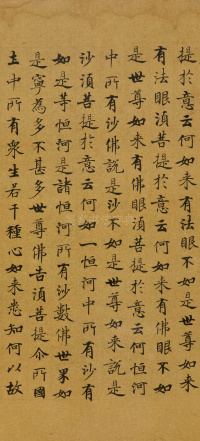 提於意云何如来有法眼不如是世尊如来
有法眼須菩提於意云何如来有佛眼不如
是世尊如来有佛眼須菩提於意云何恒河
中所有沙佛說是沙不如是世尊如来說是
沙須菩提於意云何如一恒河中所有沙有
如是等恒河是諸恒河所有沙數佛世界如
是寧為多不甚多世尊佛告須菩提尒所國
土中所有衆生若干種心如来悉知何以故